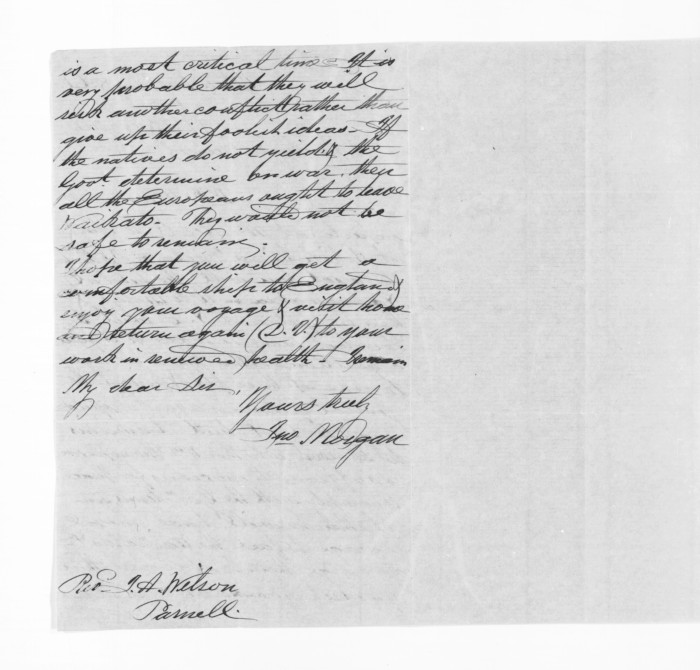 is a most critical time - It is
very probable that they will
risk another conflict rather than
give up their foolish ideas - If
the natives do not yield & the
Govt. determine on war, then
all the Europeans ought to leave
Waikato - They would not be
safe to remain.
I hope that you will get a
comfortable ship to England &
enjoy your voyage & visit home
and return again (D.V.) to your
work in renewed health. I remain
My dear Sir,
Yours truly
Jno Morgan
Rev. J. A. Wilson
Parnell.